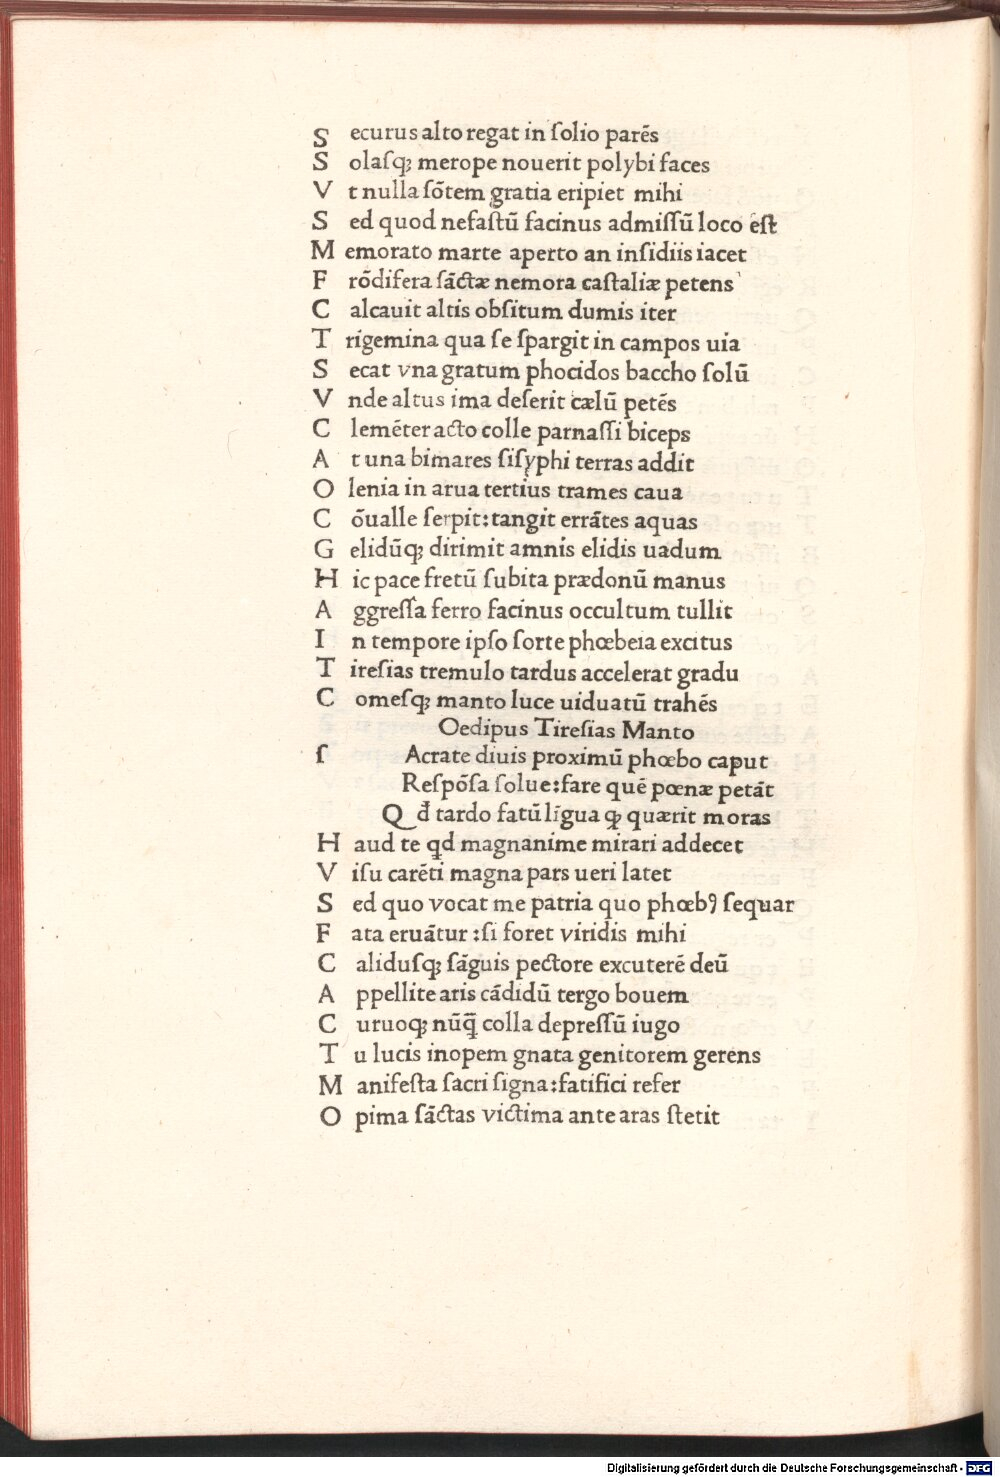 S ecurus alto regat in ſolio parẽs
S olaſqꝫ merope nouerit polybi faces
V t nulla ſõtem gratia eripiet mihi
S ed quod nefaſtũ facinus admiſſũ loco eſt
M emorato marte aperto an inſidiis iacet
F rõdifera ſãctæ nemora caſtaliæ petens
C alcauit altis obſitum dumis iter
T rigemina qua ſe ſpargit in campos uia
S ecat vna gratum phocidos baccho ſolũ
V nde altus ima deſerit cælũ petẽs
C lemẽter acto colle parnaſſi biceps
A t una bimares ſiſyphi terras addit
O lenia in arua tertius trames caua
C õualle ſerpit:tangit errãtes aquas
G elidũqꝫ dirimit amnis elidis uadum
H ic pace fretũ ſubita prædonũ manus
A ggreſſa ferro facinus occultum tullit
I n tempore ipſo ſorte phœbeia excitus
T ireſias tremulo tardus accelerat gradu
C omeſqꝫ manto luce uiduatũ trahẽs
Oedipus Tireſias Manto
ſ Acrate diuis proximũ phœbo caput
Reſpõſa ſolue:fare quẽ pœnæ petãt
Q đ tardo fatũ lĩgua ꝙ quærit moras
H aud te qd magnanime mirari addecet
V iſu carẽti magna pars ueri latet
S ed quo vocat me patria quo phœbꝰ ſequar
F ata eruãtur :ſi foret viridis mihi
C aliduſqꝫ ſãguis pectore excuterẽ deũ
A ppellite aris cãdidũ tergo bouem
C uruoqꝫ nũq̃ colla depreſſũ iugo
T u lucis inopem gnata genitorem gerens
M anifeſta ſacri ſigna:fatifici refer
O pima ſãctas victima ante aras ſtetit
Digitalisierung gefördert durch die Deutsche Forschungsgemeinschaft - DFG